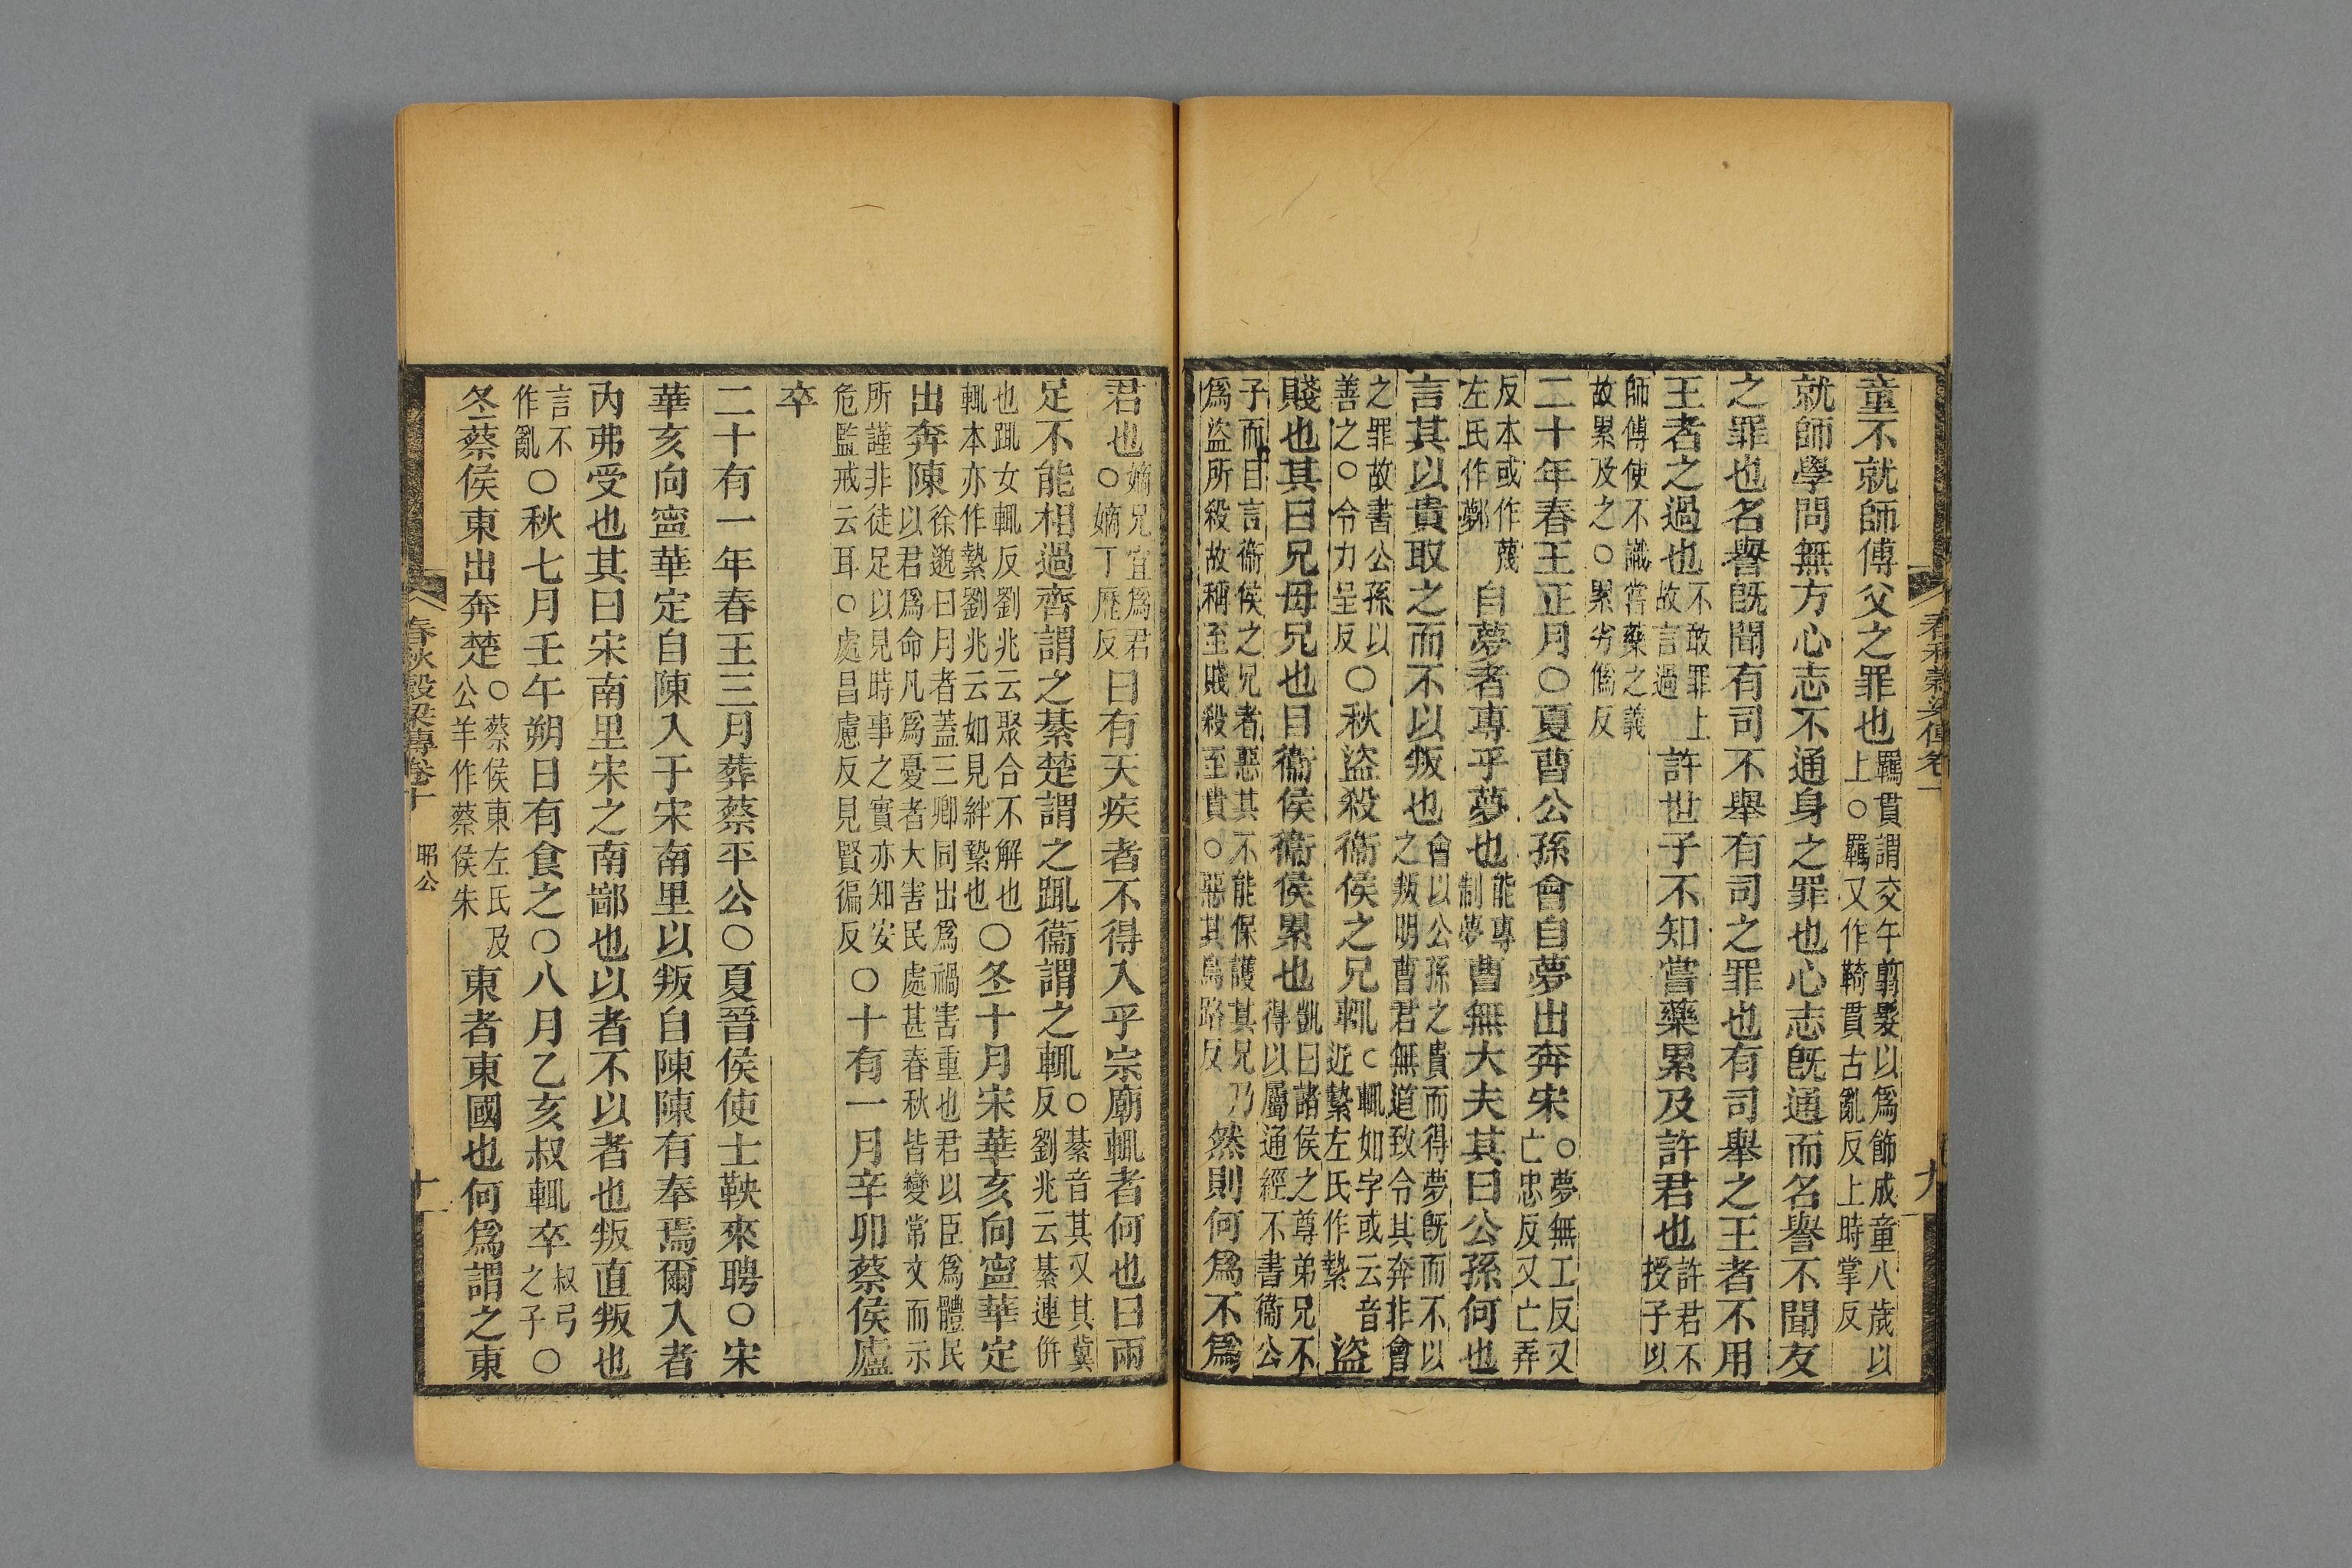 春秋穀梁傳卷十 九
童不就師傅父之罪也羈貫謂交午剪髮以爲飾成童八歲以上○羈又作鞿貫古亂反上時掌反
就師學問無方心志不通身之罪也心志旣通而名譽不聞友
之罪也名譽旣聞有司不舉有司之罪也有司舉之王者不用
王者之過也不敢罪上故言過許世子不知嘗藥累及許君也許君不授子以
師傅使不識嘗藥之義故累及之○累劣僞反
二十年春王正月○夏曹公孫會自夢出奔宋○夢無工反又亡忠反又亡弄
反本或作蔑左氏作鄸自夢者專乎夢也能專制夢曹無大夫其曰公孫何也
言其以貴取之而不以叛也會以公孫之貴而得夢旣而不以之叛明曹君無道致令其奔非會
之罪故書公孫以善之○令力呈反○秋盜殺衞侯之兄輒○輒如字或云音近縶左氏作縶盜
賤也其曰兄母兄也目衞侯衞侯累也凱曰諸侯之尊弟兄不得以屬通經不書衞公
子而目言衞侯之兄者惡其不能保護其兄乃爲盜所殺故稱至賤殺至貴○惡其烏路反然則何爲不爲
君也嫡兄宜爲君○嫡丁歷反曰有天疾者不得入乎宗廟輒者何也曰兩
足不能相過齊謂之綦楚謂之踂衞謂之輒○綦音其又其冀反劉兆云綦連併
也踂女輒反劉兆云聚合不解也輒本亦作縶劉兆云如見絆縶也○冬十月宋華亥向寧華定
出奔陳徐邈曰月者蓋三卿同出爲禍害重也君以臣爲體民以君爲命凡爲憂者大害民處甚春秋皆變常文而示
所謹非徒足以見時事之實亦知安危監戒云耳○處昌慮反見賢徧反○十有一月辛卯蔡侯廬
卒
二十有一年春王三月葬蔡平公○夏晉侯使士鞅來聘○宋
華亥向寧華定自陳入于宋南里以叛自陳陳有奉焉爾入者
內弗受也其曰宋南里宋之南鄙也以者不以者也叛直叛也
言不作亂○秋七月壬午朔日有食之○八月乙亥叔輒卒叔弓之子○
冬蔡侯東出奔楚○蔡侯東左氏及公羊作蔡侯朱東者東國也何爲謂之東
春秋穀梁傳卷十 昭公 十